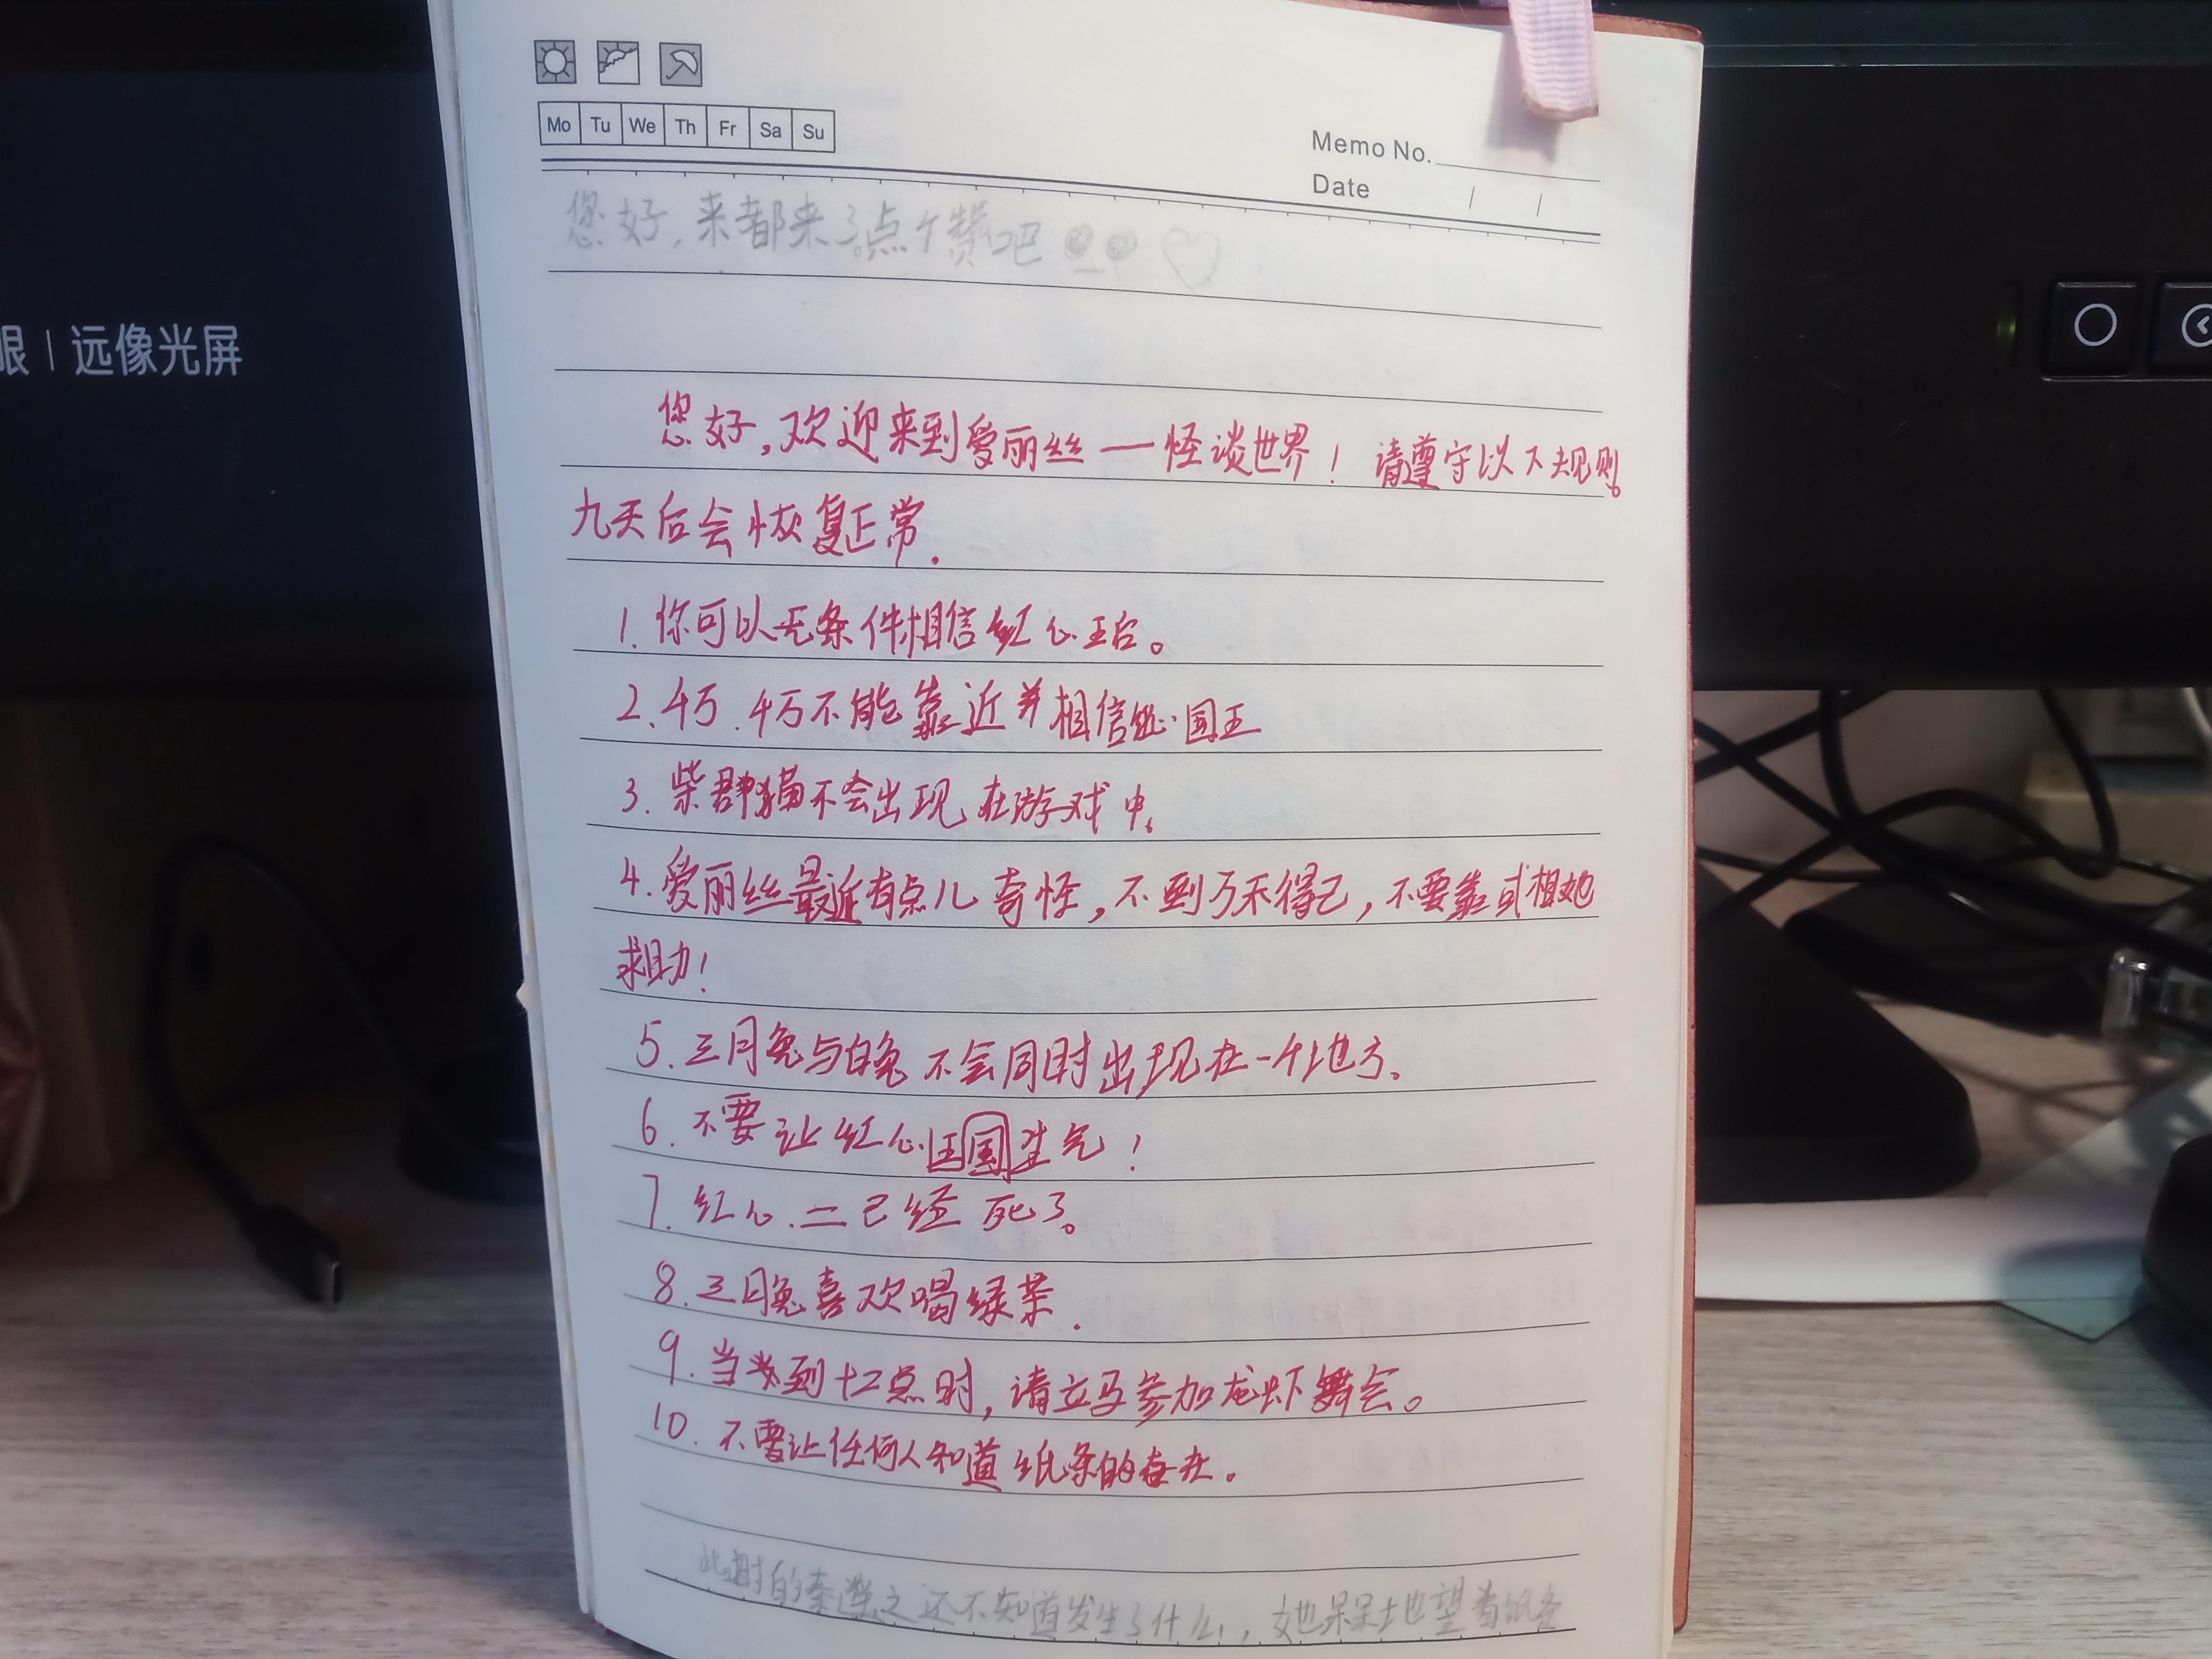 眼 | 远像光屏
Mo Tu We Th Fr Sa Su
Memo No.
Date / /
您好,来都来了点个赞吧
您好,欢迎来到爱丽丝一怪谈世界!请遵守以下规则。
九天后会恢复正常.
1.你可以无条件相信红心王后。
2.千万.千万不能靠近并相信红心国王
3.柴群猫不会出现在游戏中。
4.爱丽丝最近有点儿奇怪,不到万不得已,不要靠或相她
求助!
5.三月兔与白兔不会同时出现在一个地方。
6.不要让红心王国生气!
7.红心二已经死了。
8.三月兔喜欢喝绿茶.
9.当来到十二点时,请立马参加龙虾舞会。
10.不要让任何人知道纸条的存在。
此时的秦之还不知道发生了什么,她呆呆地望着纸条